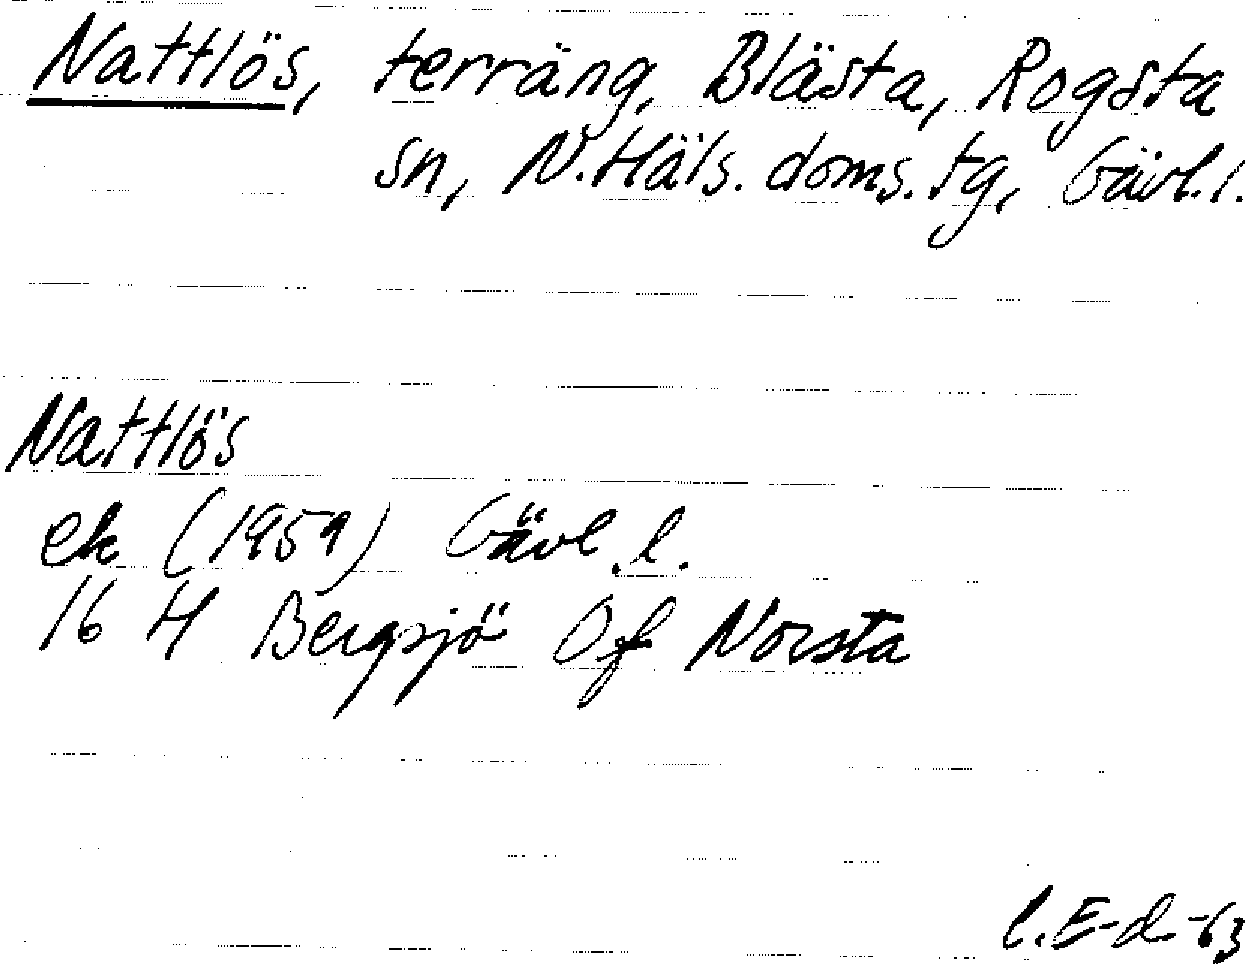 Nattlös, terräng, Blästa, Rogsta
sn, N. Häls. doms. tg, Gävl. l.
Nattlös
ek (1959) Gävl. l.
16 H Bergsjö Of Norsta
l. E-d -63